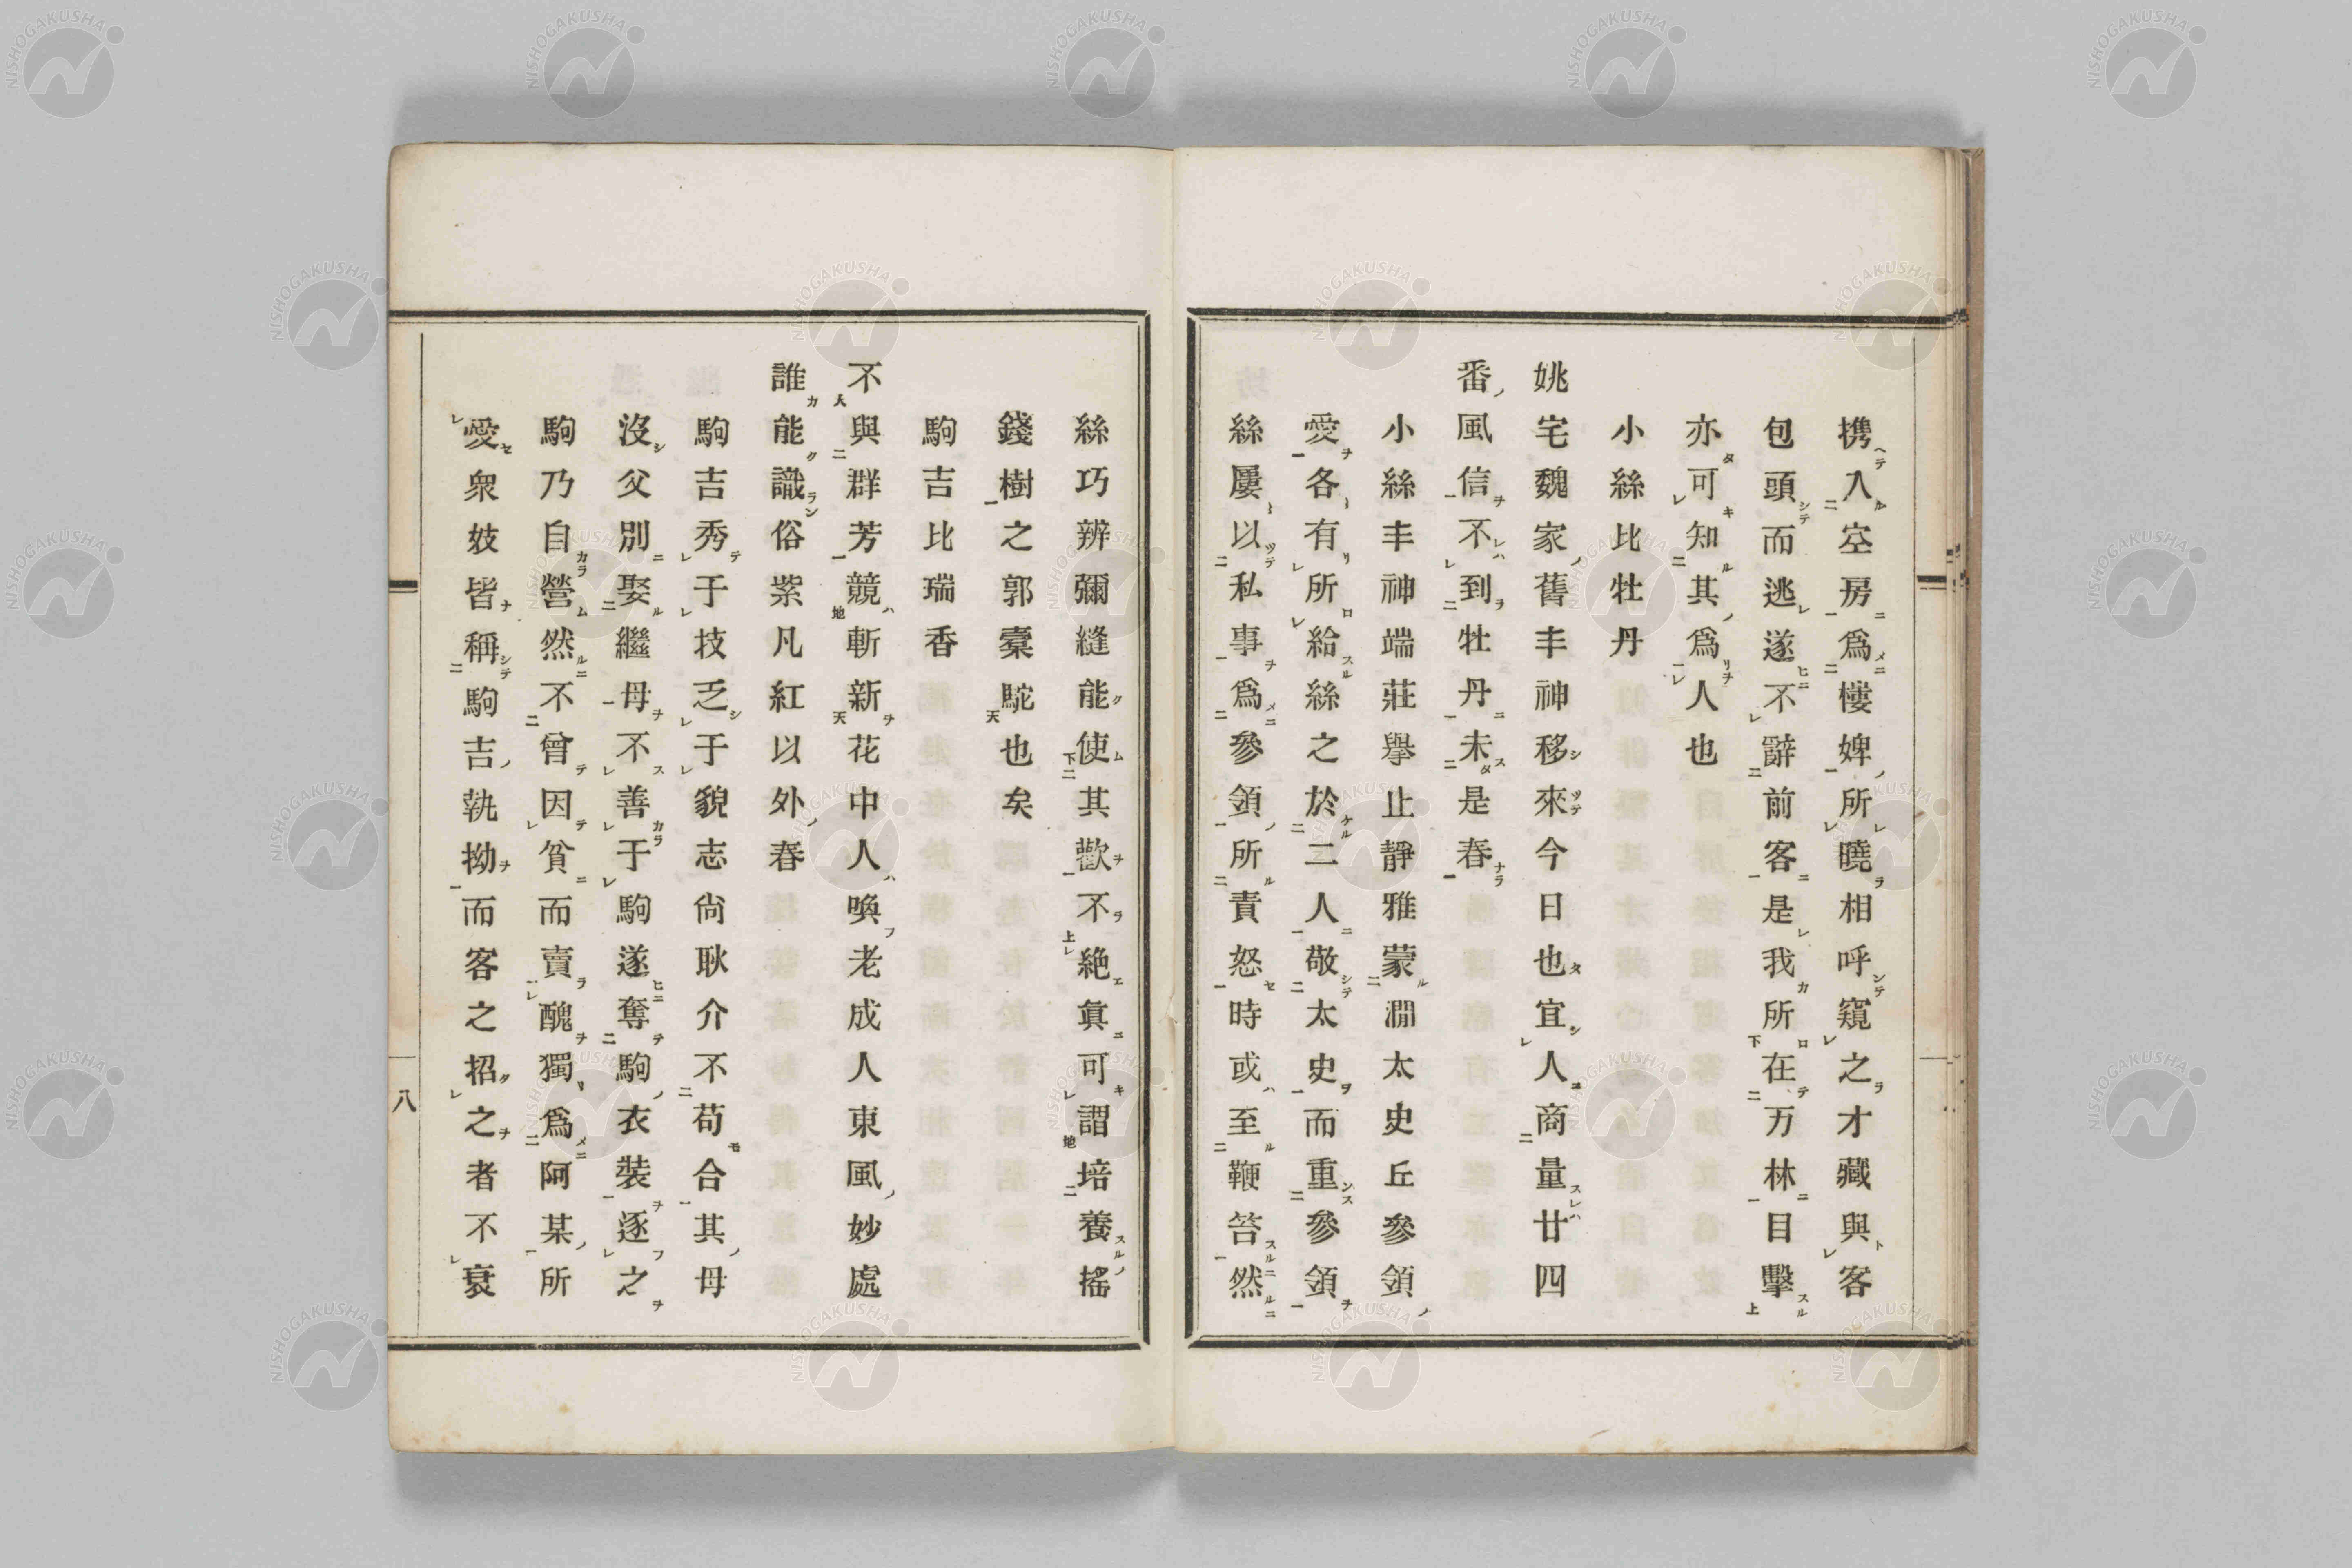 携入空房爲樓婢所曉相呼窺之才藏與客
包頭而逃遂不辭前客是我所在万林目擊
亦可知其爲人也
小絲比牡丹
姚宅魏家舊丰神移來今日也宜人商量廿四
番風信不到牡丹未是春
小絲丰神端莊擧止靜雅蒙淵太史丘參領
愛各有所給絲之於二人敬太史而重參領
絲屢以私事爲參領所責怒時或至鞭笞然
絲巧辨彌縫能使其歡不絶眞可謂培養搖
錢樹之郭橐駝也矣
駒吉比瑞香
不與群芳競斬新花中人喚老成人東風妙處
誰能識俗紫凡紅以外春
駒吉秀于技乏于貌志尙耿介不苟合其母
沒父別娶繼母不善于駒遂奪駒衣裝逐之
駒乃自營然不曾因貧而賣醜獨爲阿某所
愛衆妓皆稱駒吉執拗而客之招之者不衰
八
NISHOGAKUSHA